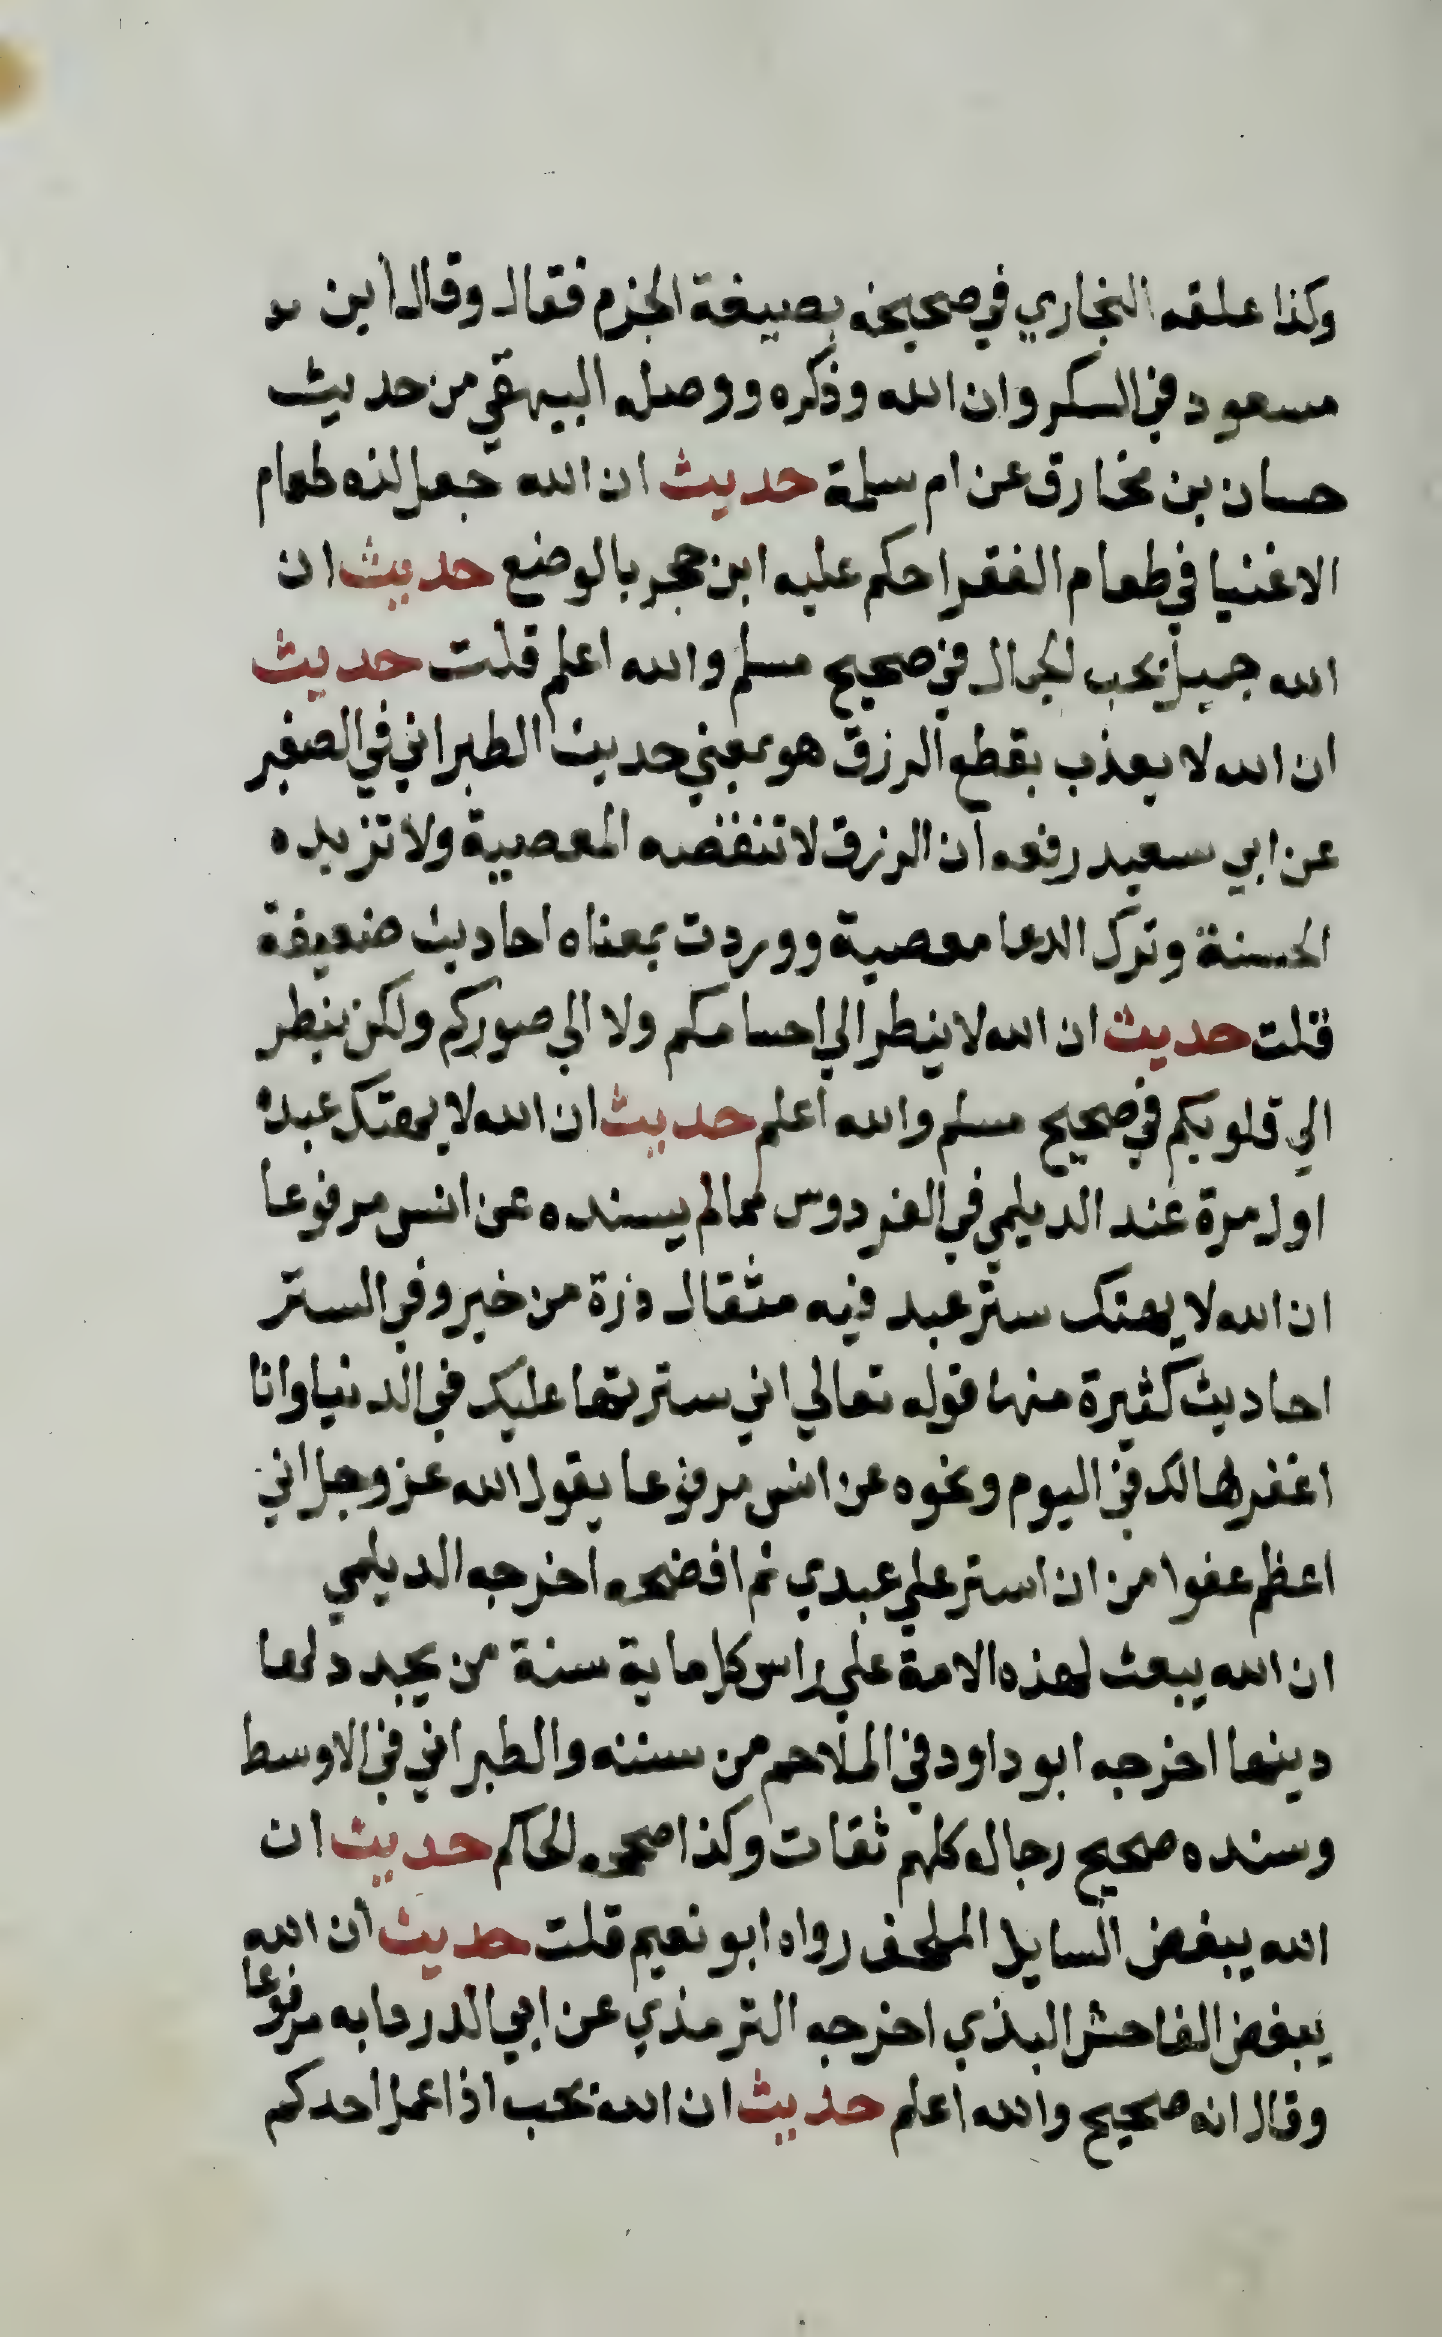 وكذا علقه البخاري في صحيحه بصيغة الجزم فقال وقال ابن
مسعود في السكر وان الله وذكره ووصله البيهقي من حديث
حسان بن مخارق عن ام سلمة حديث ان الله جعل لذه طعام
الاغنيا في طعام الفقرا حكم عليه ابن حجر بالوضع حديث ان
الله جميل يحب الجمال في صحيح مسلم والله اعلم قلت حديث
ان الله لا يعذب بقطع الرزق هو بمعني حديث الطبراني في الصغير
عن ابي سعيد رفعه ان الرزق لا تنقصه المعصية ولا تزيده
الحسنة وترك الدعا معصية ووردت بمعناه احاديث ضعيفة
قلت حديث ان الله لا ينظر الي اجسامكم ولا الي صوركم ولكن ينظر
الي قلوبكم في صحيح مسلم والله اعلم حديث ان الله لا يهتك عبده
اول مرة عند الديلمي في الفردوس مما لم يسنده عن انس مرفوعا
ان الله لا يهتك ستر عبد فيه مثقال ذرة من خير وفي الستر
احاديث كثيرة منها قوله تعالي اني سترتها عليك في الدنيا وانا
اغفرها لك في اليوم ونحوه عن انس مرفوعا يقول الله عز وجل اني
اعظم عفوا من ان استر علي عبدي ثم افضحه اخرجه الديلمي
ان الله يبعث لهذه الامة علي راس كل ماية سنة من يجدد لها
دينها اخرجه ابو داود في الملاحم من سننه والطبراني في الاوسط
وسنده صحيح رجاله كلهم ثقات وكذا صححه الحاكم حديث ان
الله يبغض السايل الملحف رواه ابو نعيم قلت حديث ان الله
يبغض الفاحش البذي اخرجه الترمذي عن ابي الدردا به مرفوعا
وقال انه صحيح والله اعلم حديث ان الله يحب اذا عمل احدكم